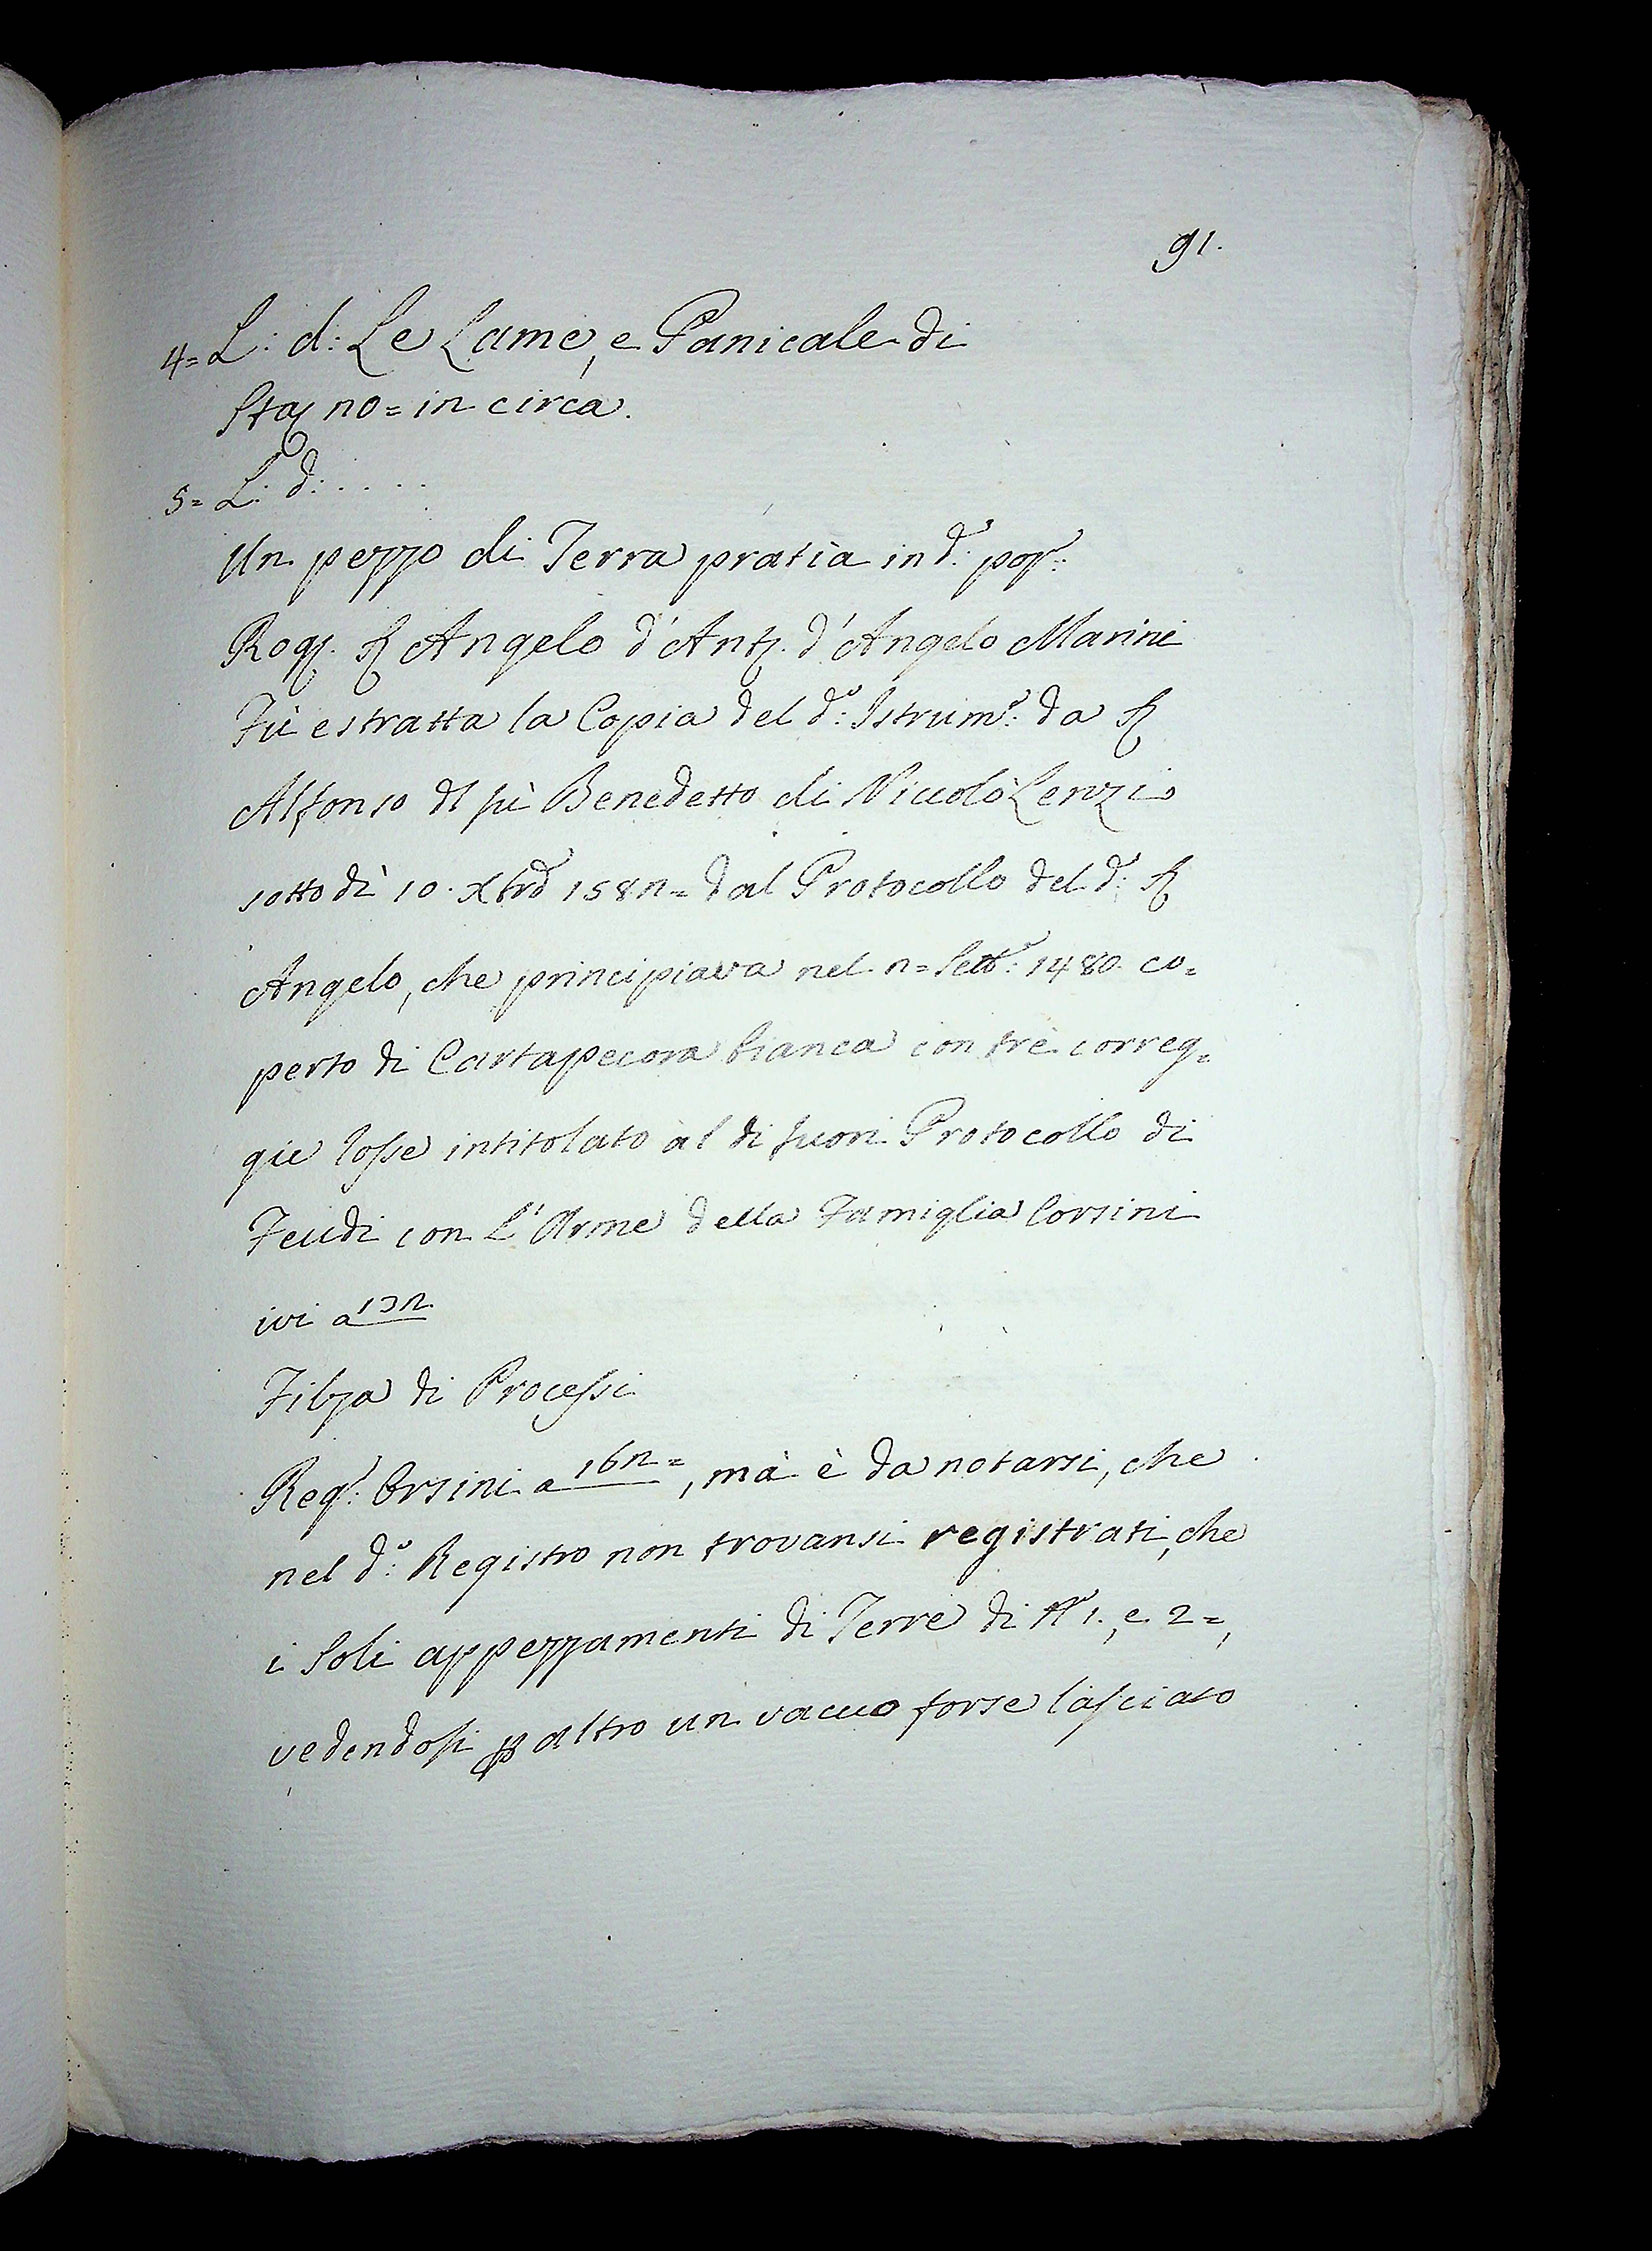 91.
4= L: d: Le Lame, e Panicale di
Staj no= in circa.
5= L: d: . . . .
Un pezzo di Terra pratia in d.º pop.º:
Rog. Ser Angelo d'Ant.º d'Angelo Marini
Fù estratta la Copia del d.º: Istrum.º: da Ser
Alfonso del fù Benedetto di Niccolò Lenzi
sotto dì 10. Xbre 158n= dal Protocollo del d.º: Ser
Angelo, che principiava nel n= Sett.e: 1480. co=
perto di Cartapecora bianca con trè correg=
gie rosse intitolato al di fuori Protocollo di
Feudi con L'Arme della Famiglia Corsini
ivi a 13n.
Filza di Processi
Reg.º: Orsini a 16n=, mà è da notarsi, che
nel d.º: Registro non trovansi registrati, che
i Soli appezzamenti di Terre di N.º 1., e 2=,
vedendosi p altro un vacuo forse lasciato